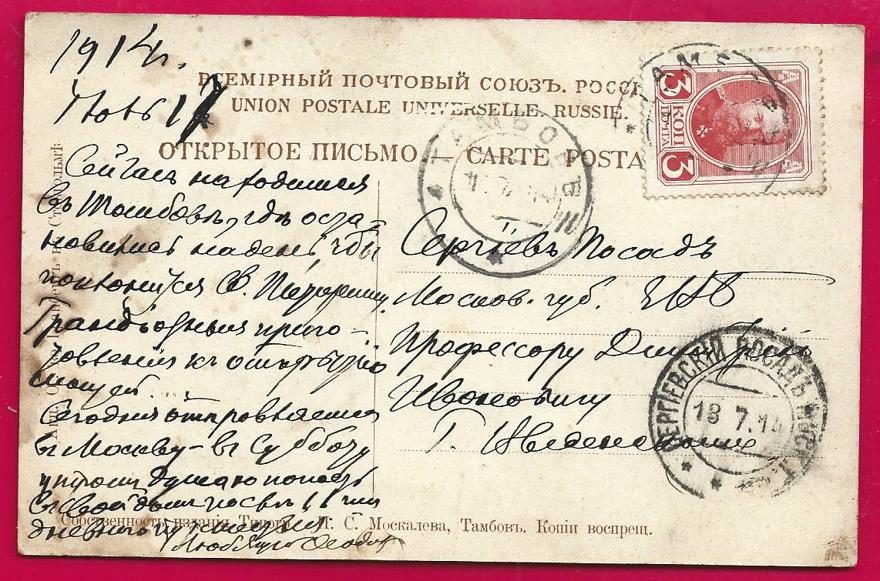 1914 г.
Июль 17
ВСЕМІРНЫЙ ПОЧТОВЫЙ СОЮЗЪ. РОССІ
UNION POSTALE UNIVERSELLE. RUSSIE.
ОТКРЫТОЕ ПИСЬМО CARTE POSTA
3 КОП
ПОЧТА 3
ТАМБОВЪ
Сейчас находимся
въ Тамбовъ, гдѣ оста
новимся на день, чтобы
поклониться Св. Питириму.
Грандіозныя приго-
товленія къ открытію
мощей...
Сегодня отправляемся
въ Москву - въ Субботу
утромъ думаю попасть
въ свой дом послѣ 11 ти
дневного
Любящій Ѳеодоръ
Сергіевъ Посадъ
Москов. губ. ЕВБ
Профессору Дмитрію
Ивановичу
Г. Введенскому
СЕРГІЕВСКІЙ ПОСАДЪ МОСК.
18.7.14
Собственность изданія Типогр. П. С. Москалева, Тамбовъ. Копіи воспрещ.